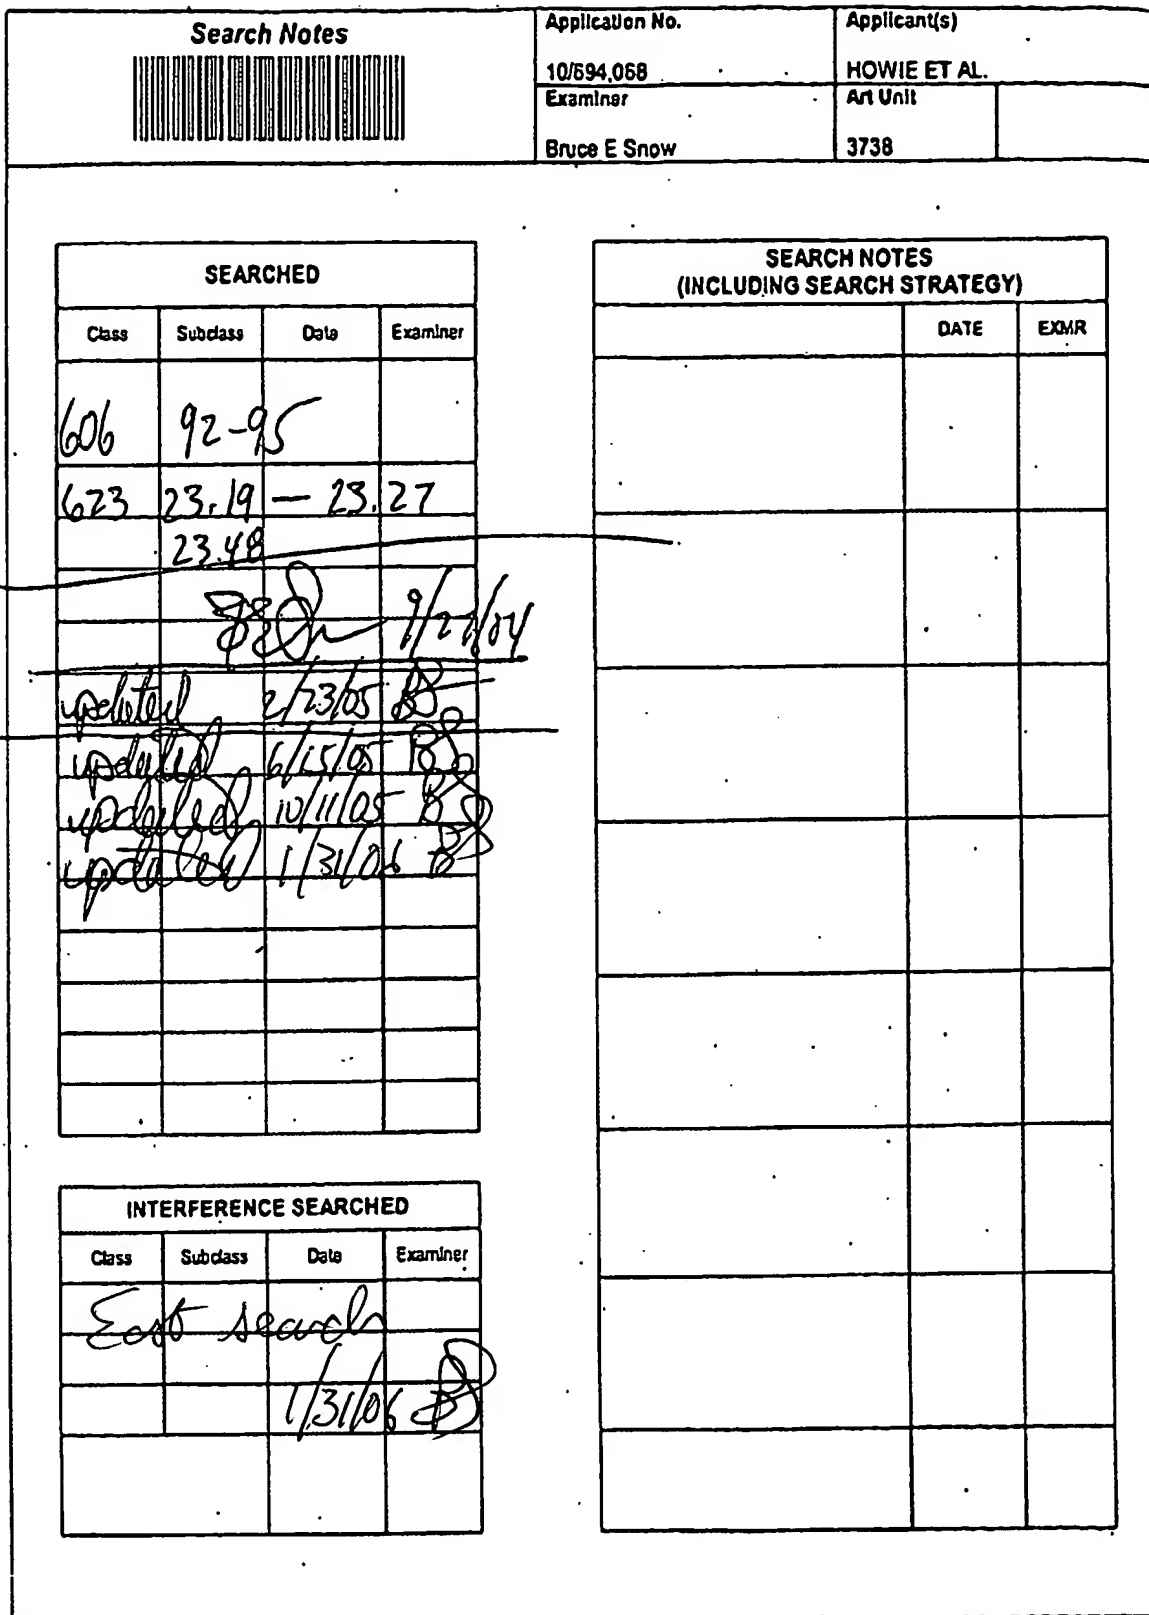 Search Notes
Application No.
10/694,068
Applicant(s)
HOWIE ET AL.
Examiner
Bruce E Snow
Art Unit
3738
SEARCHED
Class Subclass Date Examiner
606 92-95
623 23.19 — 23.27
23.48
updated 2/23/05 BS
updated 6/15/05 BS
updated 10/11/05 BS
updated 1/31/06 BS
INTERFERENCE SEARCHED
Class Subclass Date Examiner
East search
1/31/06 BS
SEARCH NOTES
(INCLUDING SEARCH STRATEGY)
DATE EXMR